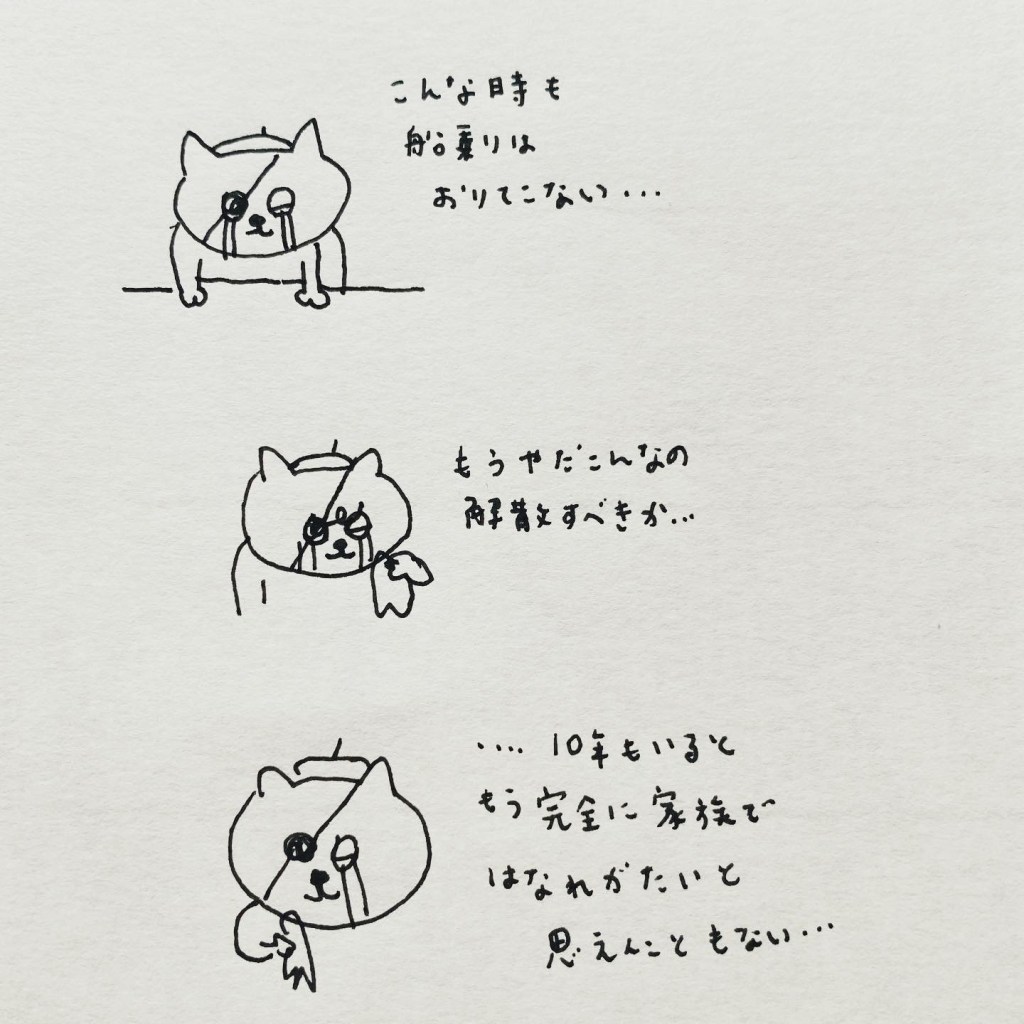 こんな時も
船乗りは
おりてこない...
もうやだこんなの
解散すべきか...
....10年もいると
もう完全に家族で
はなれがたいと
思えんこともない...